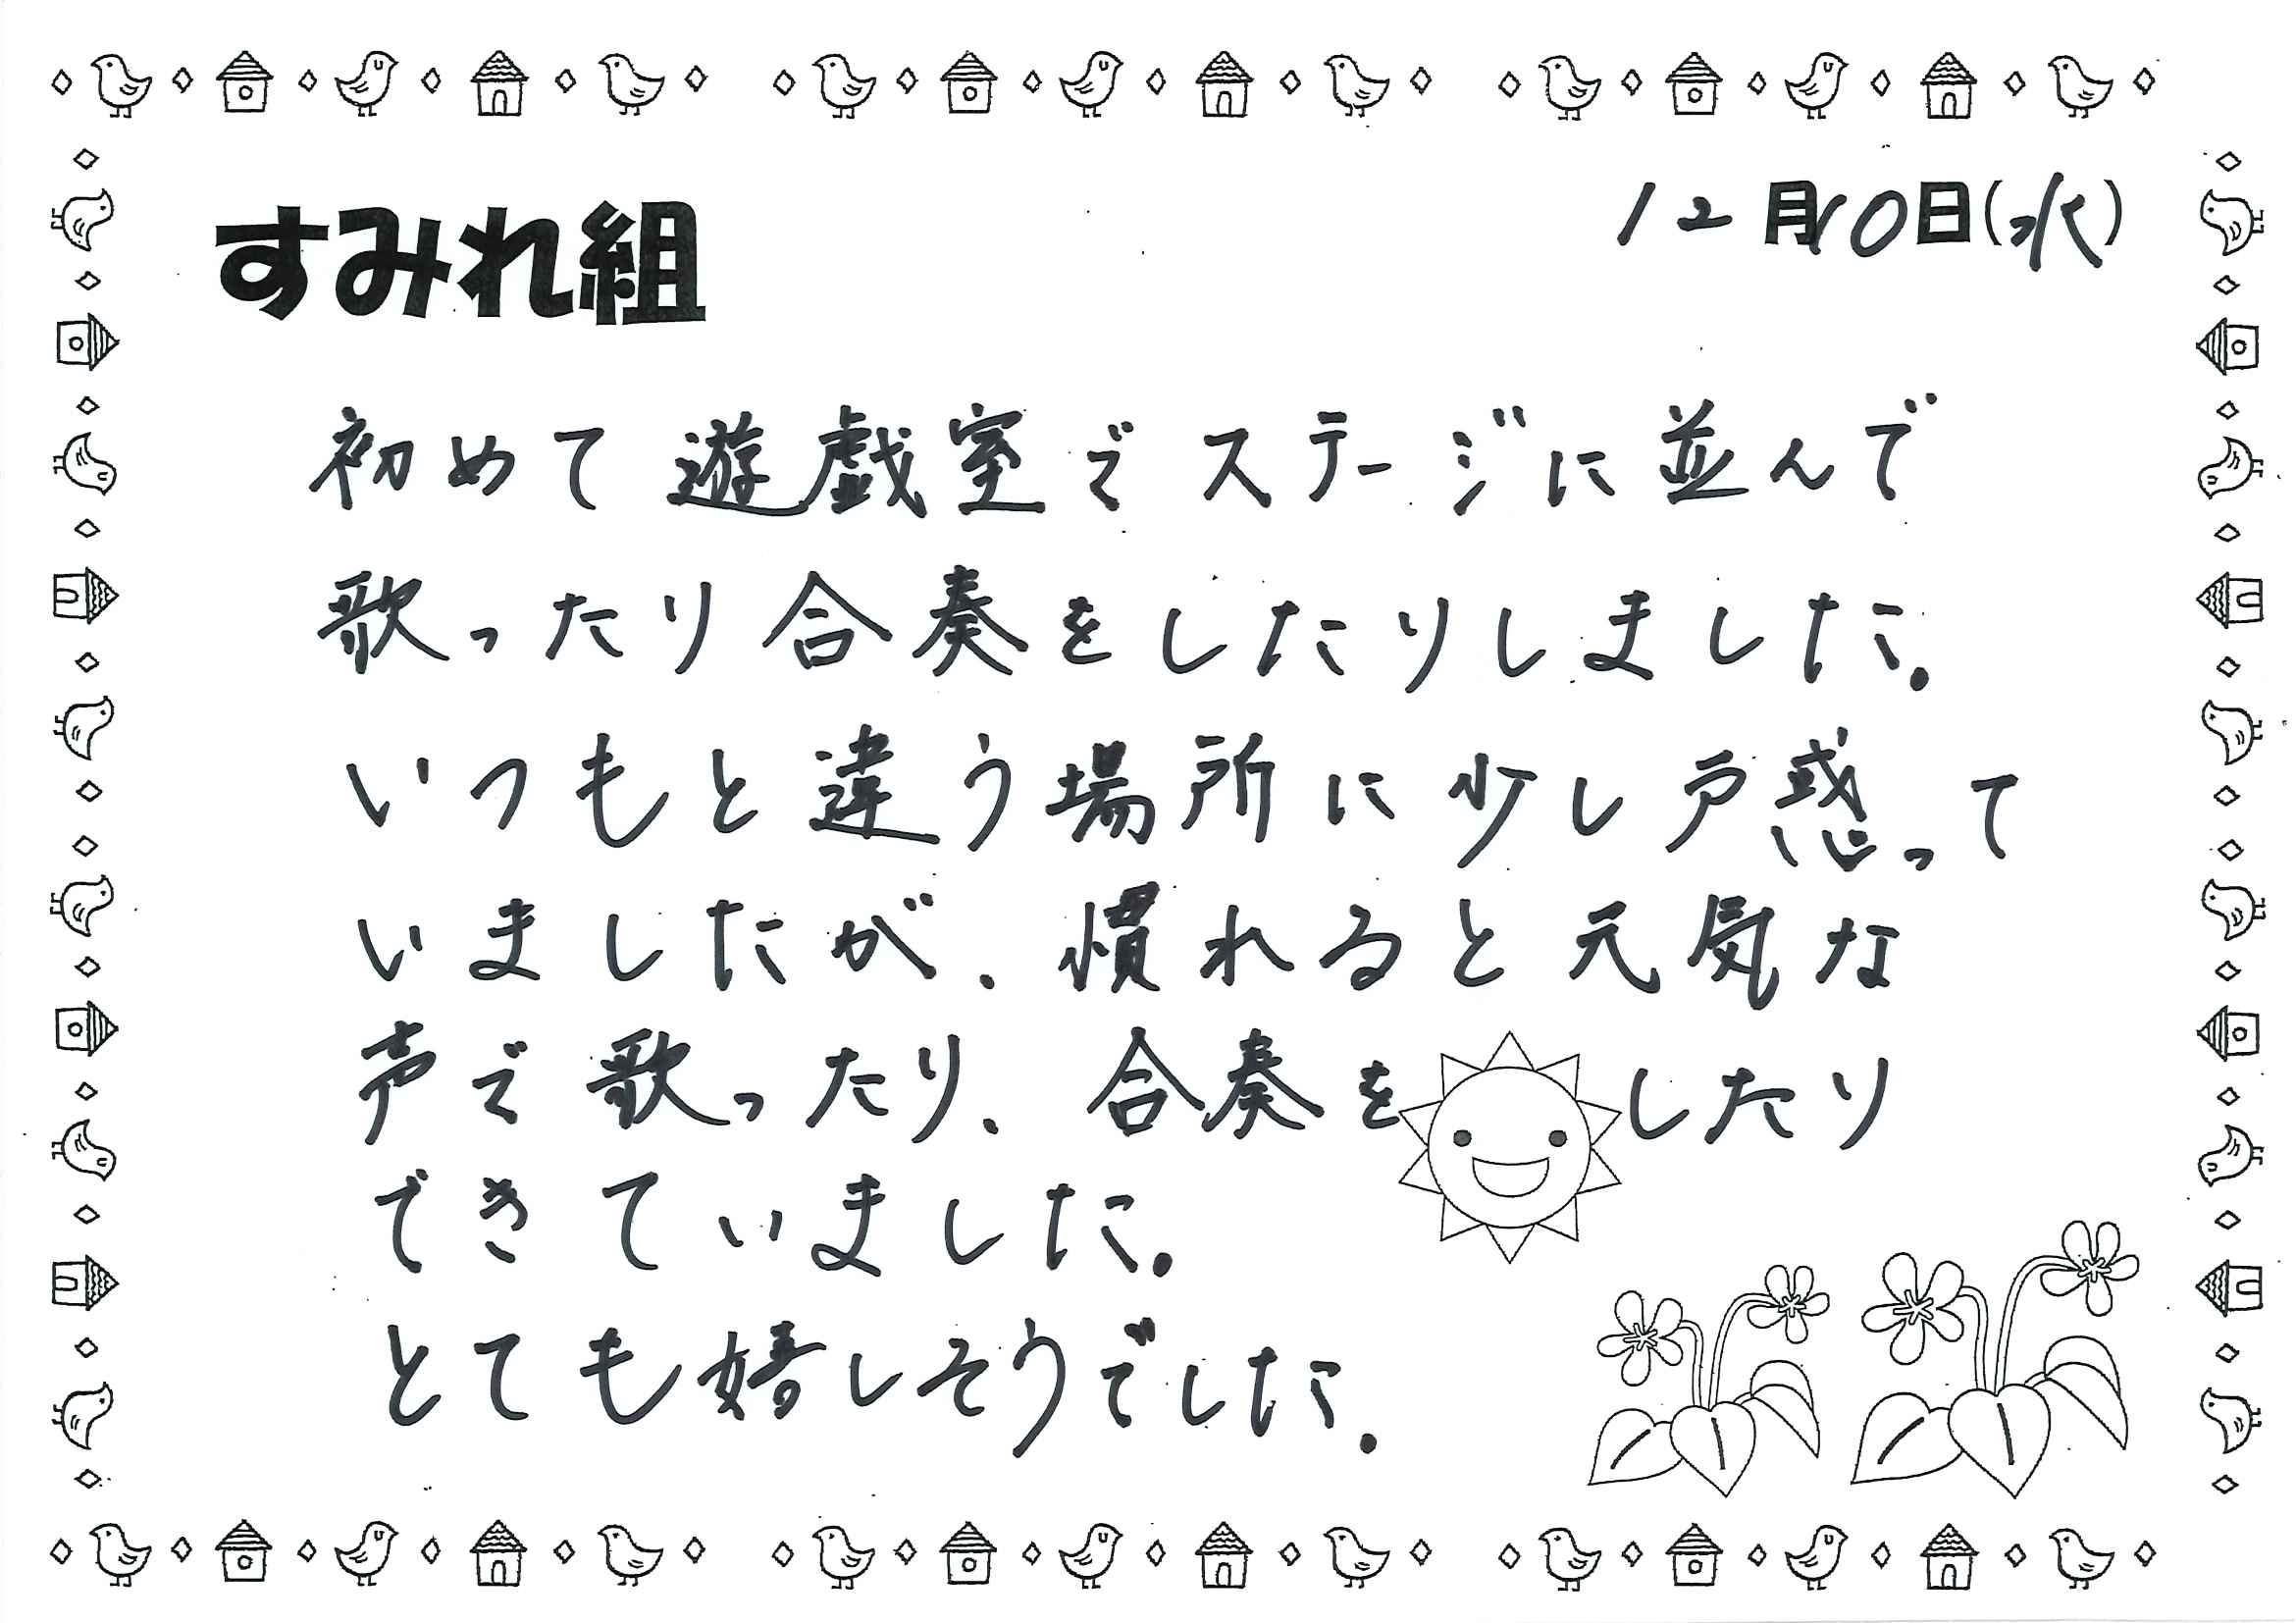 すみれ組
12月10日(水)
初めて遊戯室でステージに並んで
歌ったり合奏をしたりしました。
いつもと違う場所に少し戸惑って
いましたが、慣れると元気な
声で歌ったり、合奏をしたり
できていました。
とても嬉しそうでした。